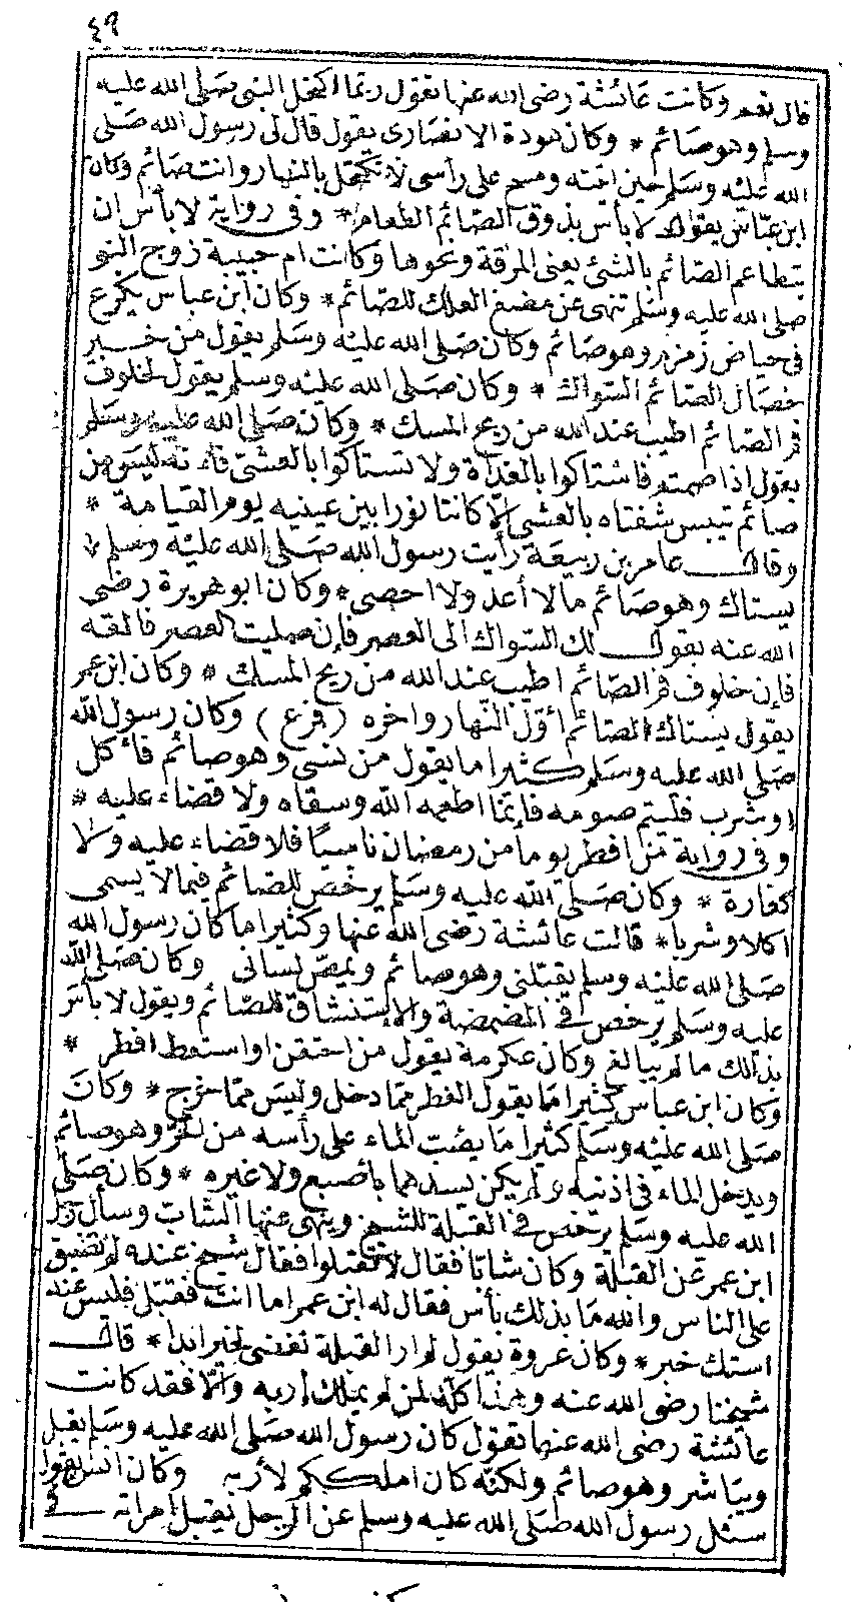 ٤٩
قال نعم وكانت عائشة رضى الله عنها تقول ربما اكتحل النبى صلى الله عليه
وسلم وهو صائم * وكان هودة الانصارى يقول قال لى رسول الله صلى
الله عليه وسلم حين اتيته ومسح على رأسى لا تكتحل بالنهار وانت صائم وكان
ابن عباس يقول لا بأس بذوق الصائم الطعام * وفى رواية لا بأس ان
يتطاعم الصائم بالشئ يعنى المرقة ونحوها وكانت ام حبيبة زوج النبى
صلى الله عليه وسلم تنهى عن مضغ العلك للصائم * وكان ابن عباس يكرع
فى حياض زمزم وهو صائم وكان صلى الله عليه وسلم يقول من خير
خصال الصائم السواك * وكان صلى الله عليه وسلم يقول لخلوف
فم الصائم اطيب عند الله من ريح المسك * وكان صلى الله عليه وسلم
يقول اذا صمتم فاستاكوا بالغداة ولا تستاكوا بالعشى فانه ليس من
صائم تيبس شفتاه بالعشى الا كانتا نورا بين عينيه يوم القيامة *
وقال عامر بن ربيعة رأيت رسول الله صلى الله عليه وسلم
يستاك وهو صائم مالا أعد ولا احصى * وكان ابو هريرة رضى
الله عنه يقول لك السواك الى العصر فإن صليت العصر فالقه
فإن خلوف فم الصائم اطيب عند الله من ريح المسك * وكان ابن عمر
يقول يستاك الصائم أوّل النهار واخره (فرع) وكان رسول الله
صلى الله عليه وسلم كثيرا ما يقول من نسى وهو صائم فأكل
او شرب فليتم صومه فإنما اطعمه الله وسقاه ولا قضاء عليه *
وفى رواية من افطر يوما من رمضان ناسيًا فلا قضاء عليه ولا
كفارة * وكان صلى الله عليه وسلم يرخص للصائم فيما لا يسمى
اكلا وشربا * قالت عائشة رضى الله عنها وكثيرا ما كان رسول الله
صلى الله عليه وسلم يقبلنى وهو صائم ويمص لسانى وكان صلى الله
عليه وسلم يرخص فى المضمضة والاستنشاق للصائم ويقول لا بأس
بذالك ما لم يبالغ وكان عكرمة يقول من احتقن او استعط افطر *
وكان ابن عباس كثيرا ما يقول الفطر مما دخل وليس مما خرج * وكان
صلى الله عليه وسلم كثيرا ما يصب الماء على رأسه من الحر وهو صائم
ويدخل الماء فى اذنيه ولم يكن يسدهما بأصبع ولا غيره * وكان صلى
الله عليه وسلم يرخص فى القبلة للشيخ وينهى عنها الشاب وسأل رجل
ابن عمر عن القبلة وكان شابّا فقال لا تقبلوا فقال شيخ عنده لم تضيق
على الناس والله ما بذلك بأس فقال له ابن عمر اما انت فقبل فليس عند
استك خبر * وكان عروة يقول لم ار القبلة تفضى لخير ابدا * قال
شيخنا رضى الله عنه وهذا كله لمن لم يملك إربه والا فقد كانت
عائشة رضى الله عنها تقول كان رسول الله صلى الله عليه وسلم يقبل
ويباشر وهو صائم ولكنه كان املككم لأربه وكان انس يقول
سئل رسول الله صلى الله عليه وسلم عن الرجل يقبل امراته فى